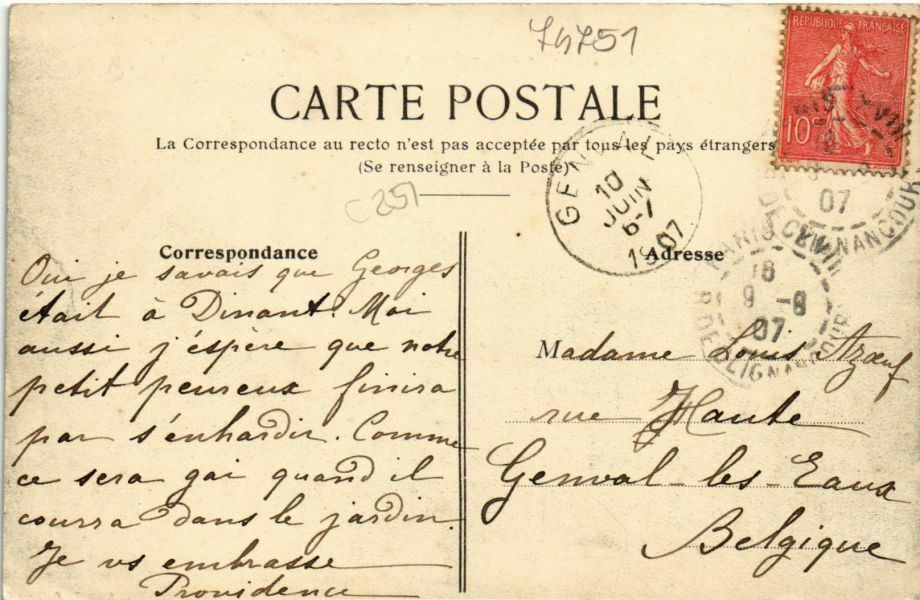 74751
RÉPUBLIQUE FRANÇAISE
10
CARTE POSTALE
La Correspondance au recto n'est pas acceptée par tous les pays étrangers
(Se renseigner à la Poste)
C251
GENVAL
10
JUIN
6-7
1907
07
Correspondance
Oui je savais que Georges
était à Dinant. Moi
aussi j'espère que notre
petit peureux finira
par s'enhardir. Comme
ce sera gai quand il
courra dans le jardin.
Je vs embrasse
Providence
Adresse
PARIS
18
9 -6
07
R. DE CLIGNANCOURT
Madame Louis Azœuf
rue Haute
Genval-les-Eaux
Belgique